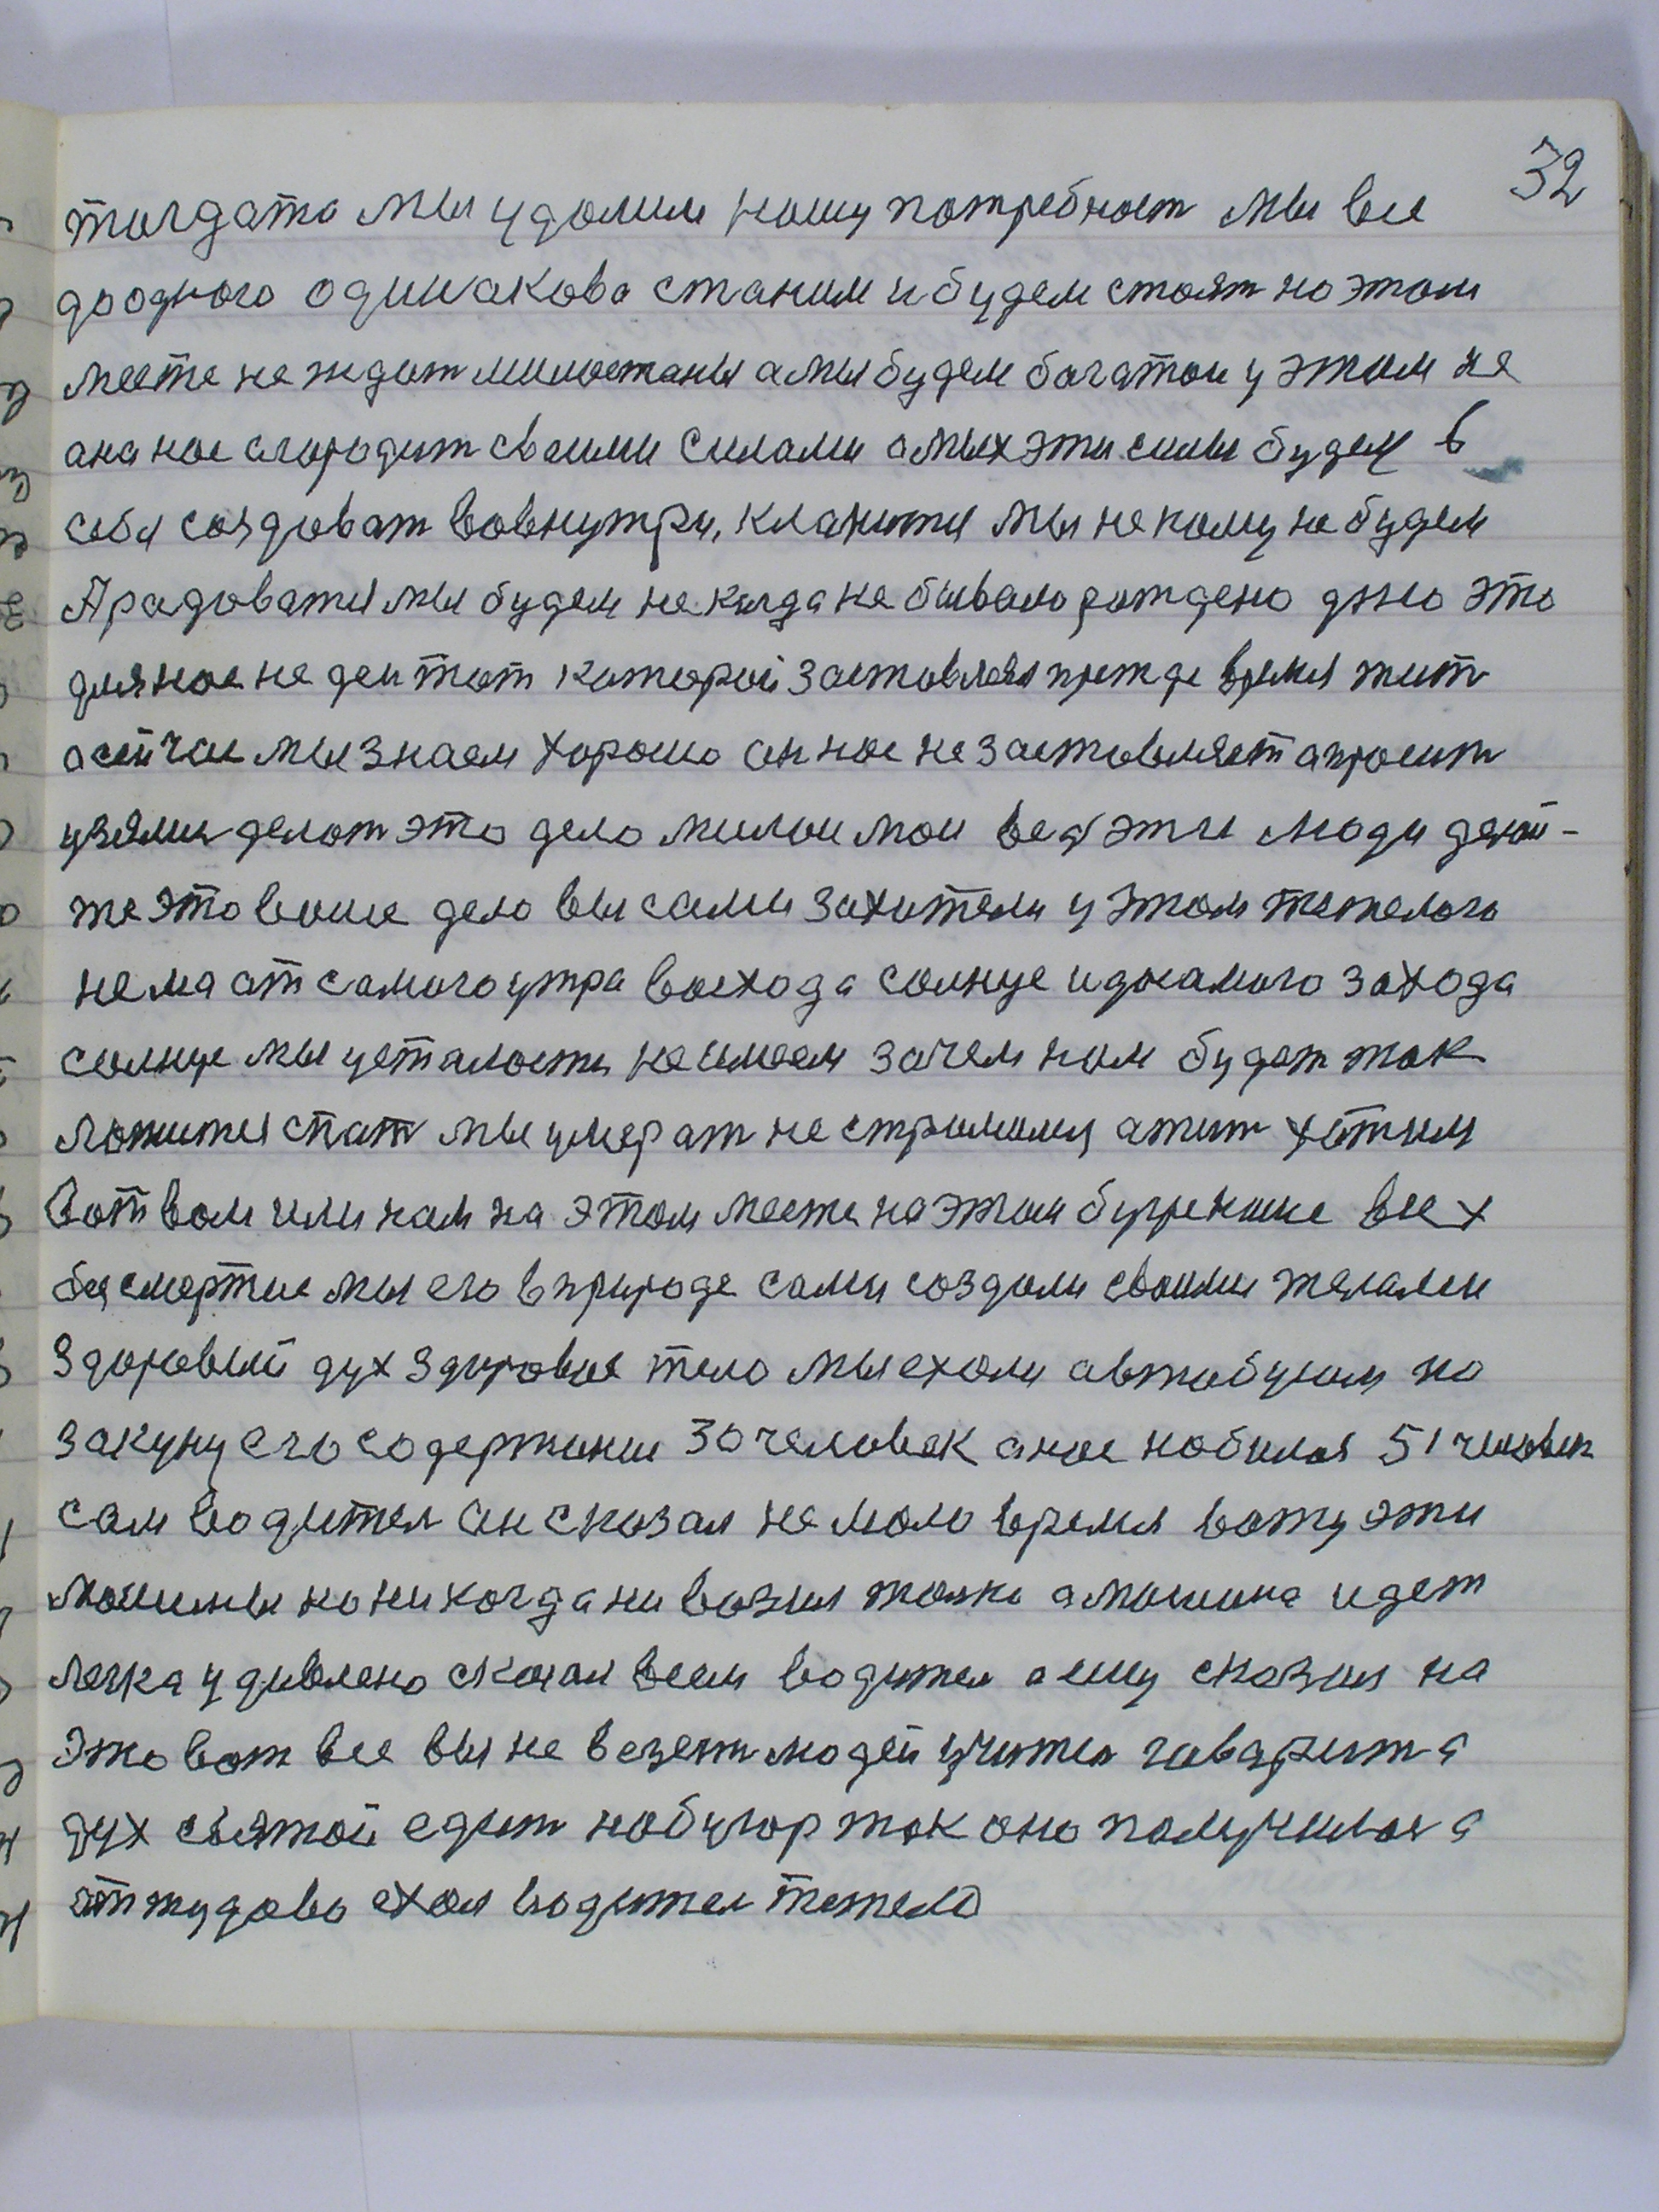 32
тогдато мы удолим нашу потребност мы все
доодного одинакова станим и будем стоят на этом
месте не ждит милостаны а мы будем богатои у этом не
ана нас слородит своими силами а мы х эти силы будем в
себя создоват вовнутри, кланится мы не кому не будем
А радоватся мы будем не когда не бывало рождено дно это
для нас не ден тот каторой заставлял прежде время жит
а сейчас мы знаем хорошо он нас не заставляет а просит
узялись делат это дело милои мои вед эти люди делай-
те это ваше дело вы сами захители у этом тежелого
нема от самого утра восхода солнце и досамого захода
солнце мы усталости не имеем зачем нам будет так
ложится спат мы умерат не стримимся, а жит хотим
Вот вам или нам на этом месте на этом бугре наше всех
бессмертие мы его в природе сами создали своими телами
Здоровый дух здоровае тело мы ехали автобусом на
закуну его содержание 30 человек а нас набилоя 51 человек
сам водител он сказал не мало время вожу эти
машины но никогда ни возил толко а машина идет
легка удивлено скочал всем водител а ему сказал на
это вот все вы не везете людей учител гаварит а
дух святой едит на бугор так оно получилоя а
оттудова ехал водител тежело